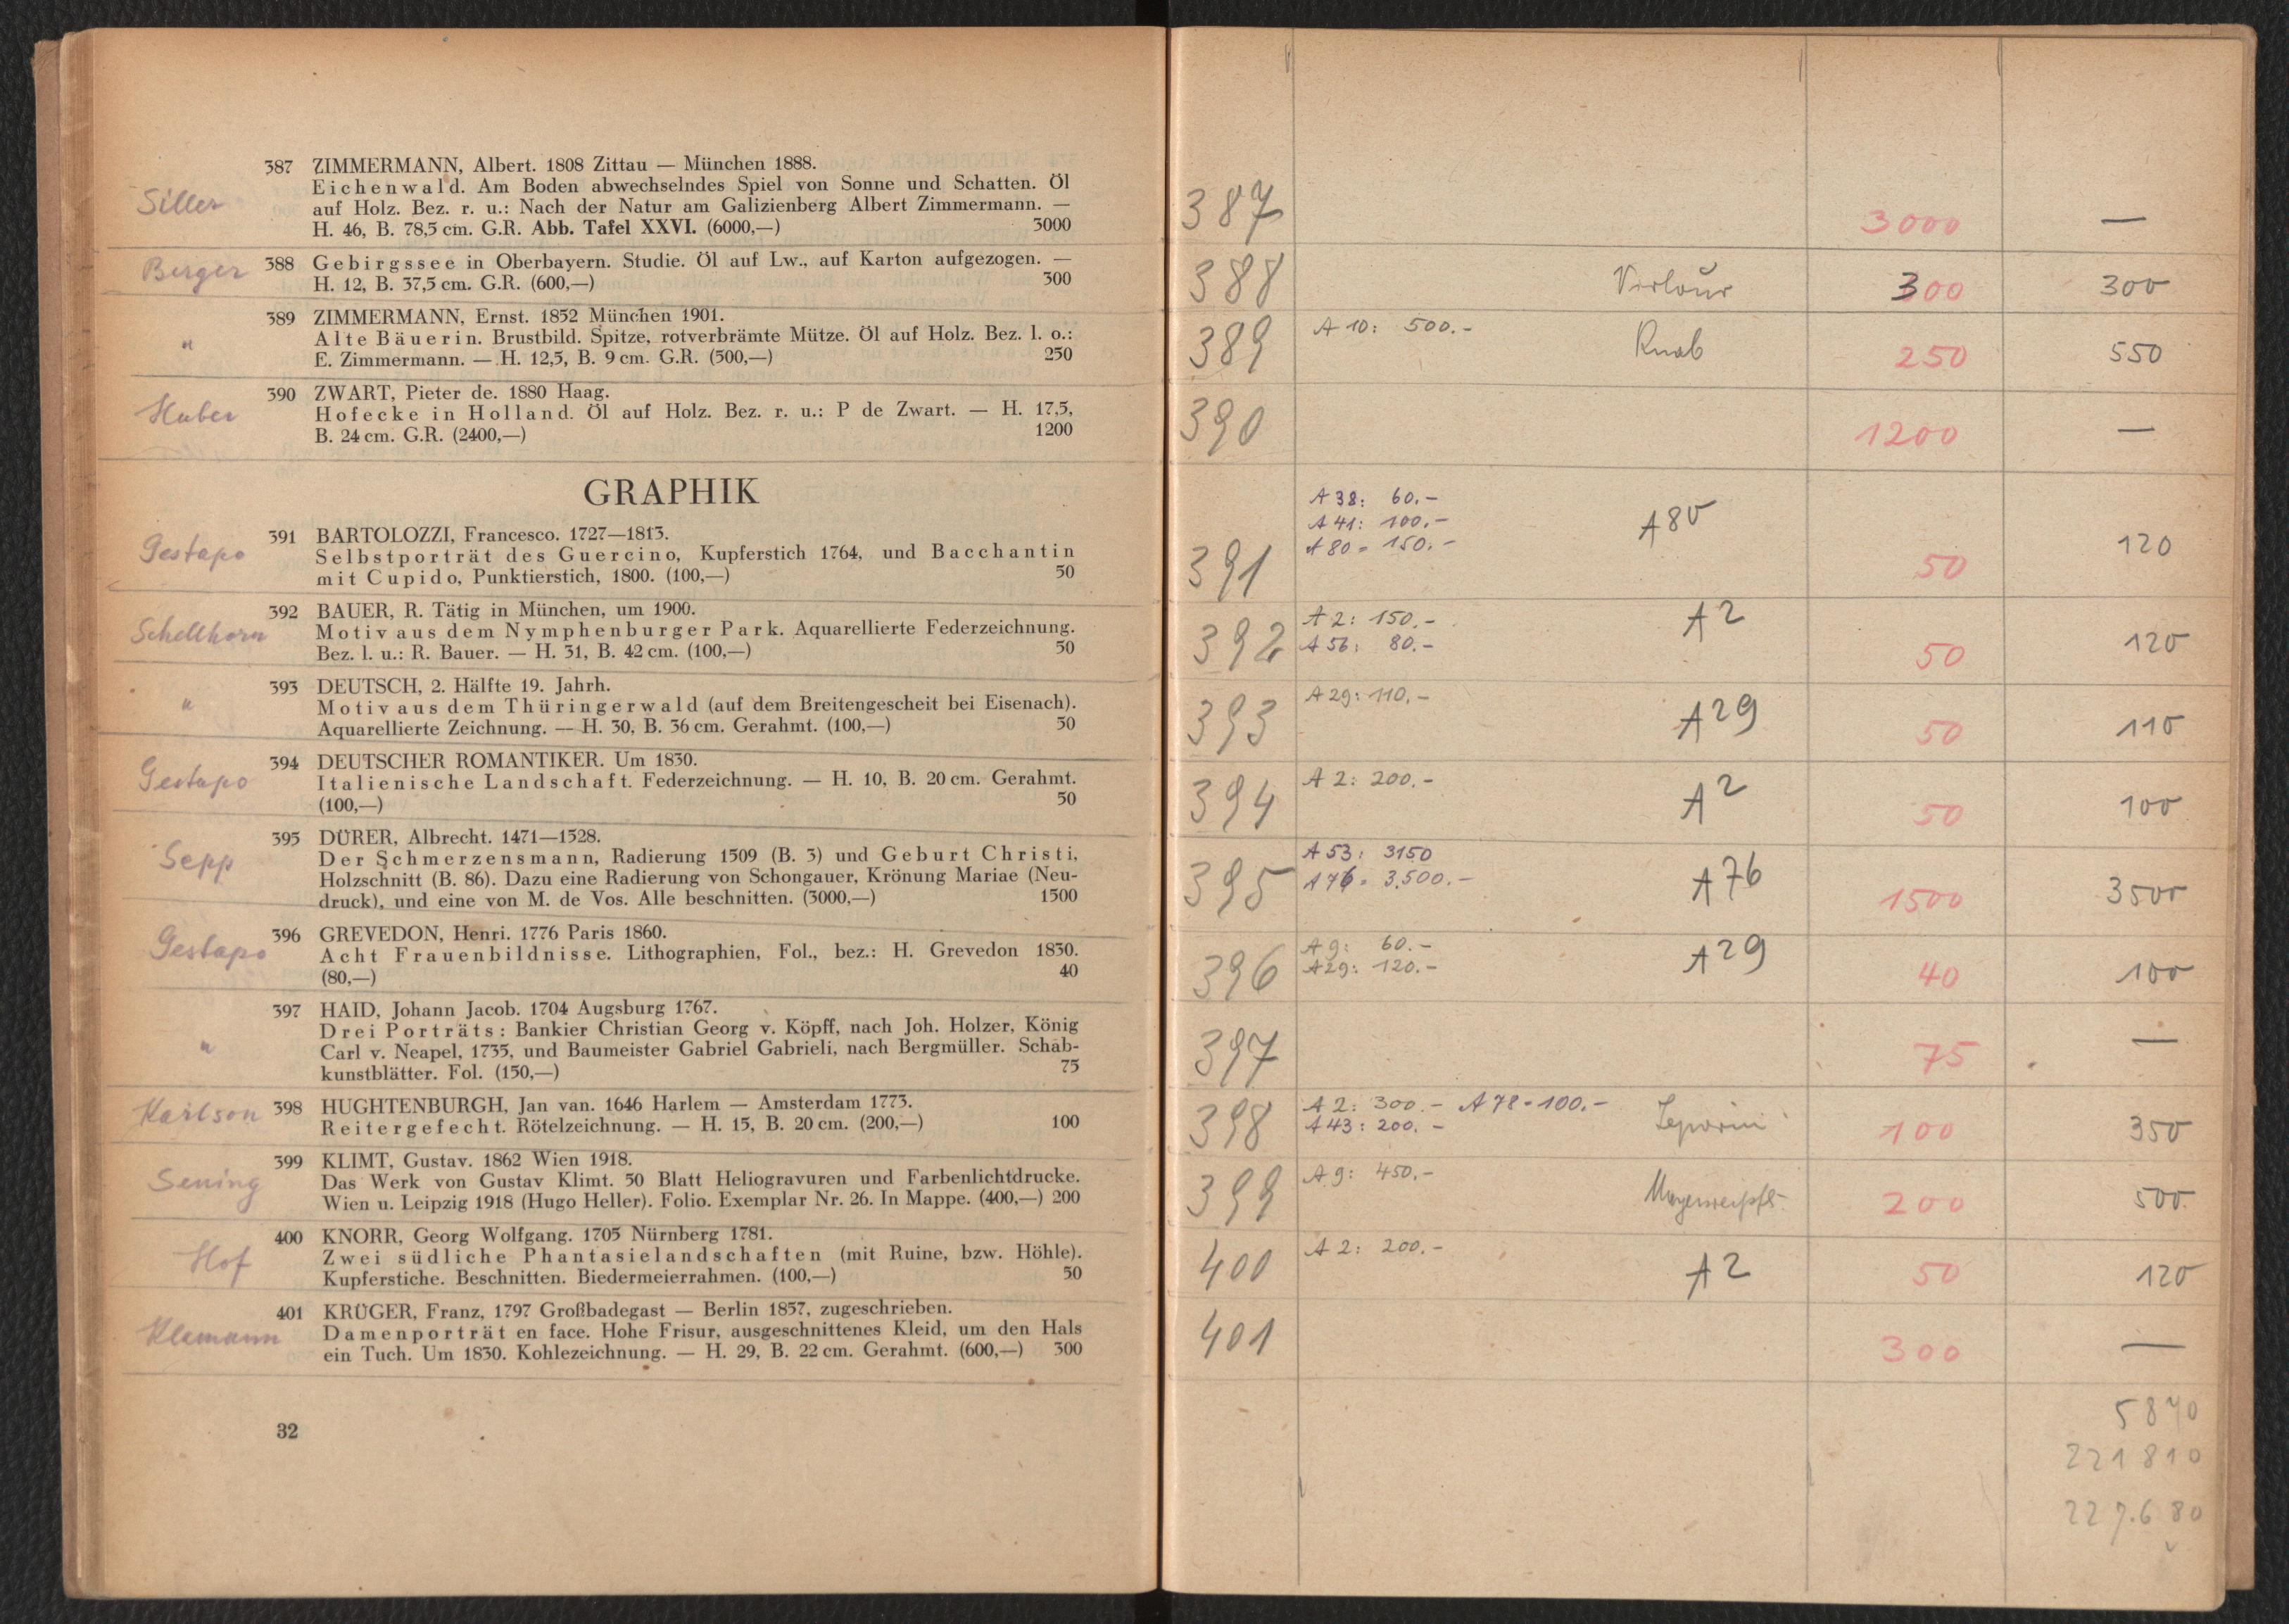 387 ZIMMERMANN, Albert. 1808 Zittau — München 1888.
Siller
Eichenwald. Am Boden abwechselndes Spiel von Sonne und Schatten. Öl
auf Holz. Bez. r. u.: Nach der Natur am Galizienberg Albert Zimmermann. —
H. 46, B. 78,5 cm. G.R. Abb. Tafel XXVI. (6000,—) 3000
Berger
388 Gebirgssee in Oberbayern. Studie. Öl auf Lw., auf Karton aufgezogen. —
H. 12, B. 37,5 cm. G.R. (600,—) 300
389 ZIMMERMANN, Ernst. 1852 München 1901.
"
Alte Bäuerin. Brustbild. Spitze, rotverbrämte Mütze. Öl auf Holz. Bez. l. o.:
E. Zimmermann. — H. 12,5, B. 9 cm. G.R. (500,—) 250
390 ZWART, Pieter de. 1880 Haag.
Huber
Hofecke in Holland. Öl auf Holz. Bez. r. u.: P de Zwart. — H. 17,5,
B. 24 cm. G.R. (2400,—) 1200
GRAPHIK
391 BARTOLOZZI, Francesco. 1727—1813.
Gestapo
Selbstporträt des Guercino, Kupferstich 1764, und Bacchantin
mit Cupido, Punktierstich, 1800. (100,—) 50
392 BAUER, R. Tätig in München, um 1900.
Schellhorn
Motiv aus dem Nymphenburger Park. Aquarellierte Federzeichnung.
Bez. l. u.: R. Bauer. — H. 31, B. 42 cm. (100,—) 50
393 DEUTSCH, 2. Hälfte 19. Jahrh.
"
Motiv aus dem Thüringerwald (auf dem Breitengescheit bei Eisenach).
Aquarellierte Zeichnung. — H. 30, B. 36 cm. Gerahmt. (100,—) 50
394 DEUTSCHER ROMANTIKER. Um 1830.
Gestapo
Italienische Landschaft. Federzeichnung. — H. 10, B. 20 cm. Gerahmt.
(100,—) 50
395 DÜRER, Albrecht. 1471—1528.
Sepp
Der Schmerzensmann, Radierung 1509 (B. 3) und Geburt Christi,
Holzschnitt (B. 86). Dazu eine Radierung von Schongauer, Krönung Mariae (Neu-
druck), und eine von M. de Vos. Alle beschnitten. (3000,—) 1500
396 GREVEDON, Henri. 1776 Paris 1860.
Gestapo
Acht Frauenbildnisse. Lithographien, Fol., bez.: H. Grevedon 1830.
(80,—) 40
397 HAID, Johann Jacob. 1704 Augsburg 1767.
Drei Porträts: Bankier Christian Georg v. Köpff, nach Joh. Holzer, König
"
Carl v. Neapel, 1735, und Baumeister Gabriel Gabrieli, nach Bergmüller. Schab-
kunstblätter. Fol. (150,—) 75
Karlson
398 HUGHTENBURGH, Jan van. 1646 Harlem — Amsterdam 1773.
Reitergefecht. Rötelzeichnung. — H. 15, B. 20 cm. (200,—) 100
399 KLIMT, Gustav. 1862 Wien 1918.
Sening
Das Werk von Gustav Klimt. 50 Blatt Heliogravuren und Farbenlichtdrucke.
Wien u. Leipzig 1918 (Hugo Heller). Folio. Exemplar Nr. 26. In Mappe. (400,—) 200
400 KNORR, Georg Wolfgang. 1705 Nürnberg 1781.
Hof
Zwei südliche Phantasielandschaften (mit Ruine, bzw. Höhle).
Kupferstiche. Beschnitten. Biedermeierrahmen. (100,—) 50
401 KRÜGER, Franz, 1797 Großbadegast — Berlin 1857, zugeschrieben.
Klemann
Damenporträt en face. Hohe Frisur, ausgeschnittenes Kleid, um den Hals
ein Tuch. Um 1830. Kohlezeichnung. — H. 29, B. 22 cm. Gerahmt. (600,—) 300
32
387 3000 —
388 300 300
389 A 10: 500.- Knab 250 550
390 1200 —
A 38: 60.-
A 41: 100.-
A 80 = 150.-
391 A 80 50 120
A 2: 150.-
A 56: 80.-
392 A 2 50 120
393 A 29: 110.- A 29 50 110
394 A 2: 200.- A 2 50 100
A 53: 3150
A 76 = 3.500.-
395 A 76 1500 3500
A 9: 60.-
A 29: 120.-
396 A 29 40 100
397 75 —
A 2: 300.- A 78 = 100.-
A 43: 200.-
398 Leporini 100 350
399 A 9: 450.- 200 500.
400 A 2: 200.- A 2 50 120
401 300 —
5870
221810
227.680